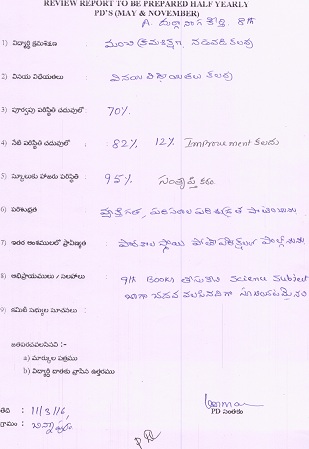 REVIEW REPORT TO BE PREPARED HALF YEARLY
PD'S (MAY & NOVEMBER)
A. దుర్గా నాగ 8th
1) విద్యార్థి క్రమశిక్షణ : మంచి క్రమశిక్షణ కలదు
2) వినయ విధేయతలు : వినయ విధేయతలు కలవు
3) పూర్వపు పరిస్థితి చదువులో : 70%
4) నేటి పరిస్థితి చదువులో : 82% 12% Improvement కలదు
5) స్కూలుకు హాజరు పరిస్థితి : 95% సంతృప్తికరం
6) పరిశుభ్రత : వ్యక్తిగత, పరిసరాల పరిశుభ్రత
7) ఇతర అంశములలో ప్రావీణ్యత : పాఠశాల స్థాయి
8) అభిప్రాయములు / సలహాలు : 9th Books Science Subject
బాగా
9) కమిటీ సభ్యుల సూచనలు :
జతపరచవలసినవి :-
a) మార్కుల పత్రము
b) విద్యార్థి దాతకు వ్రాసిన ఉత్తరము
తేది : 11/3/16,
PD సంతకం
గ్రామం :